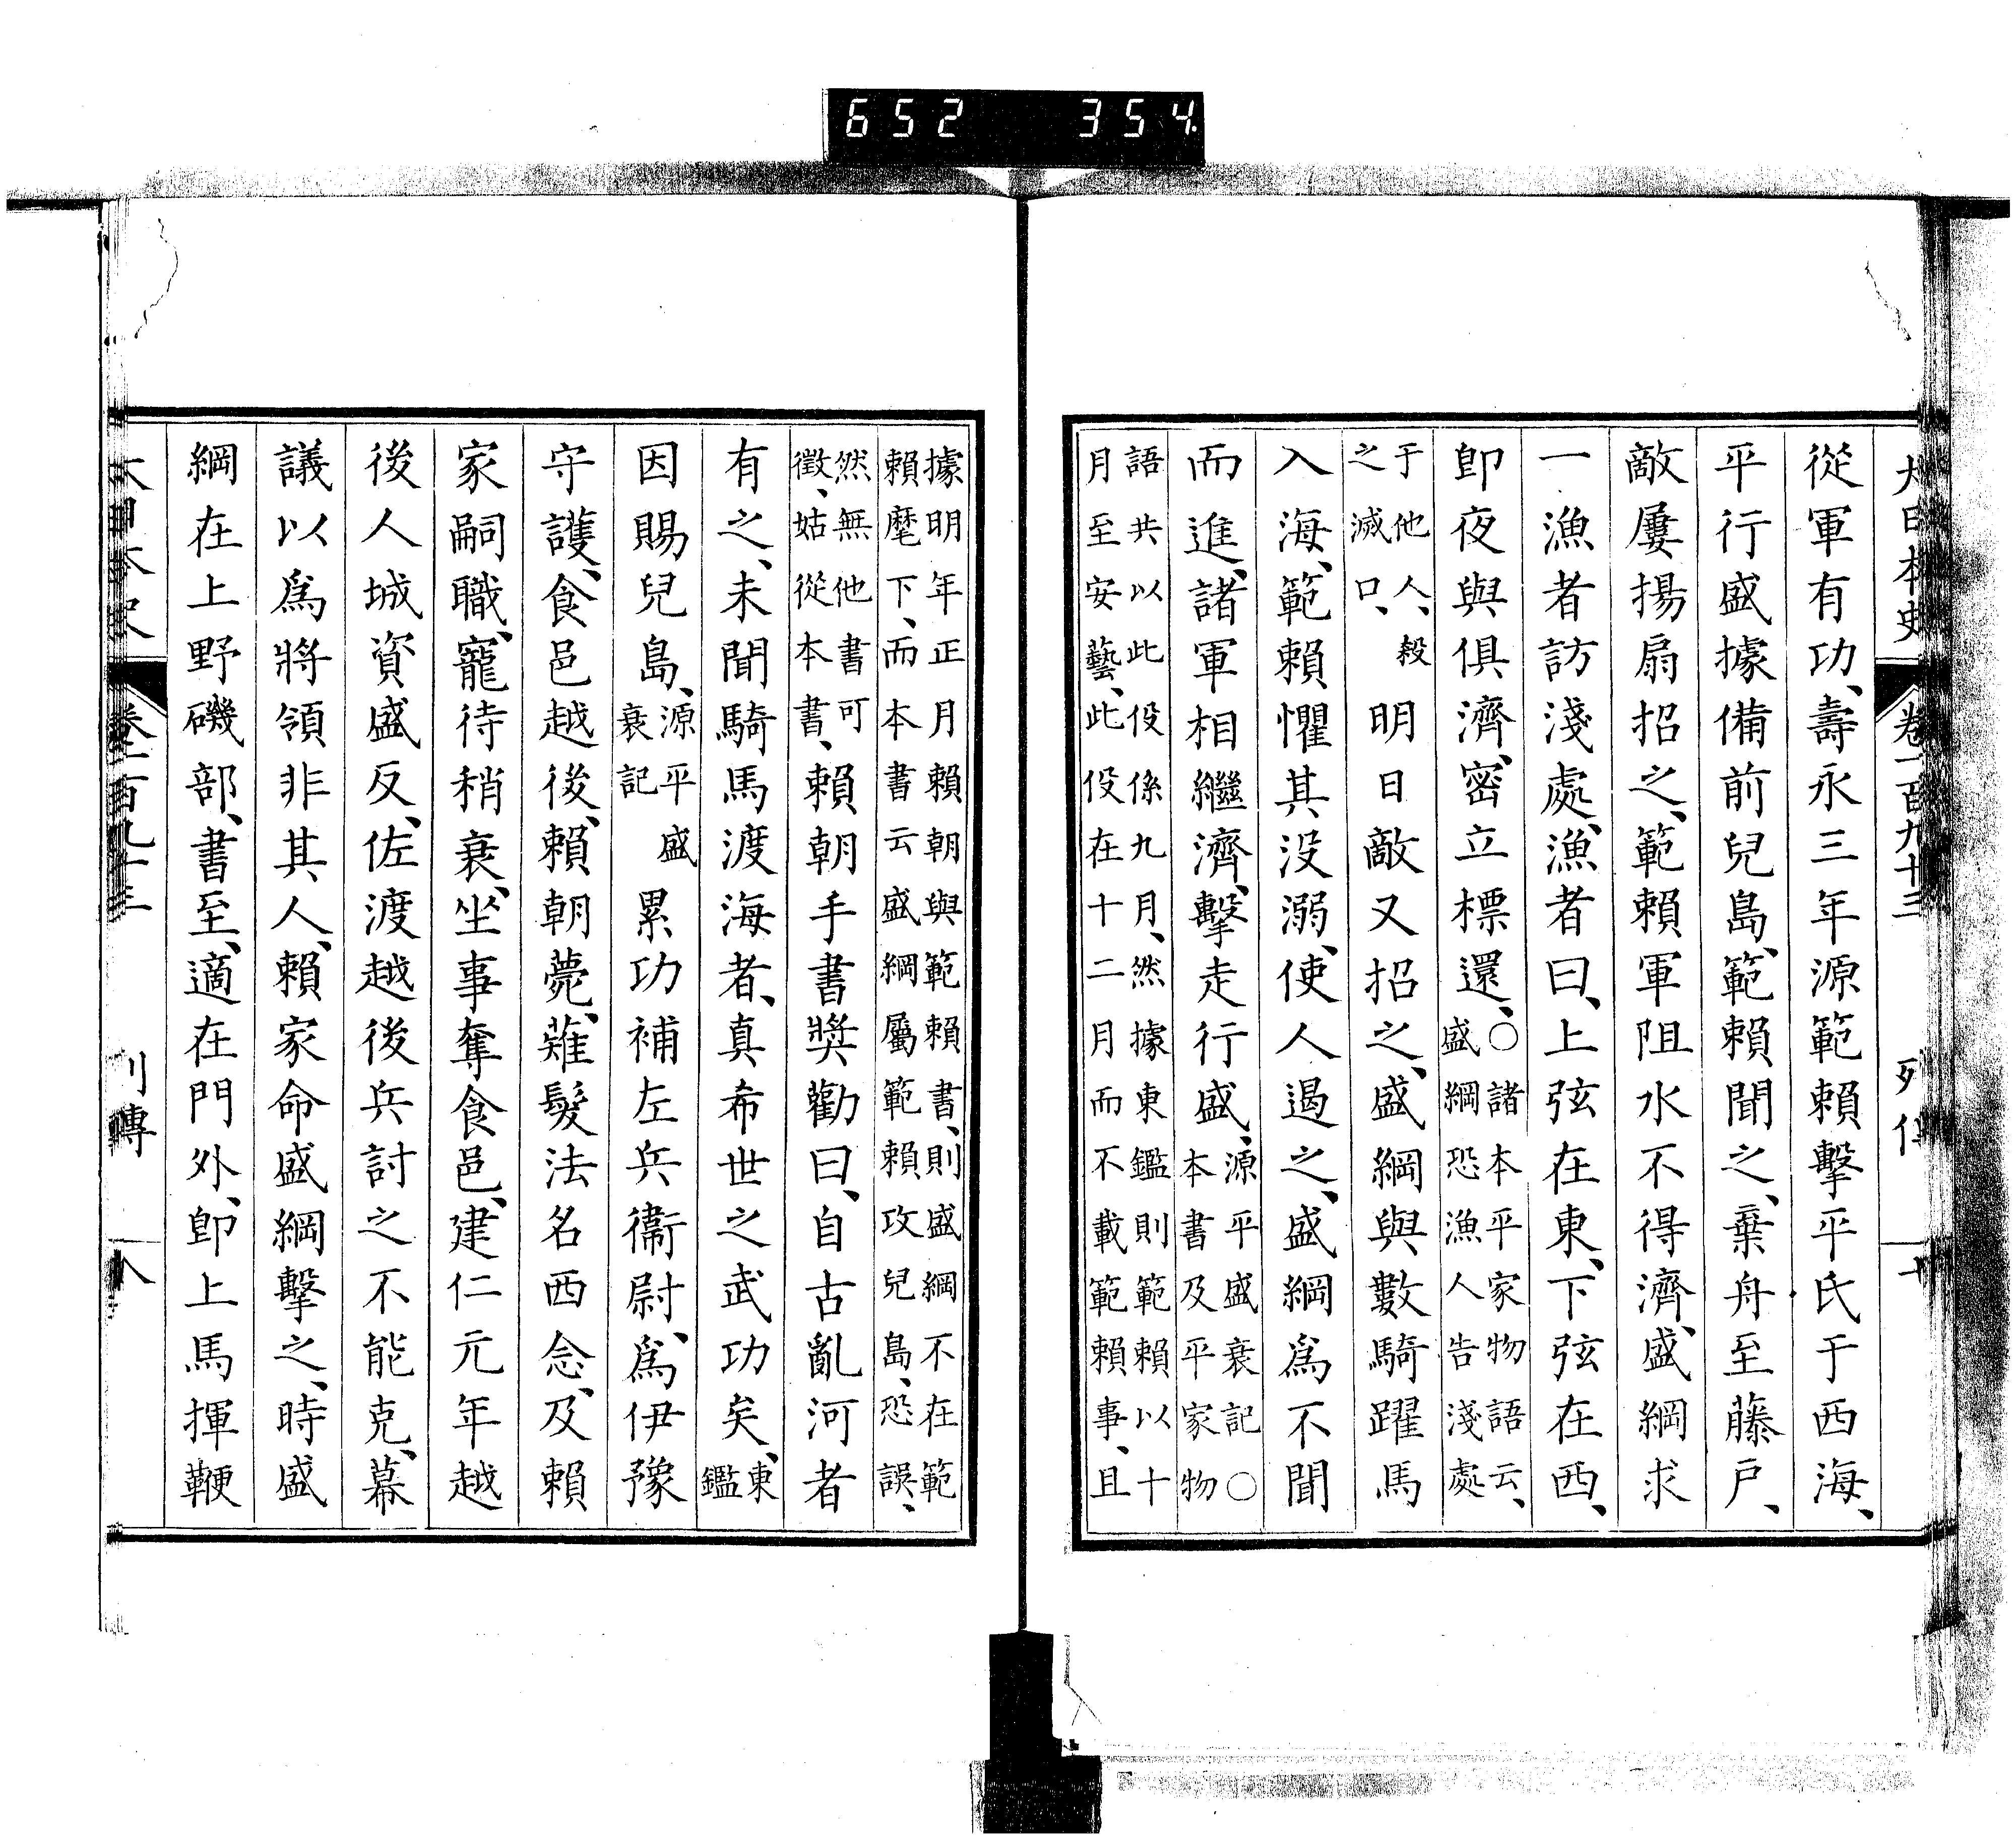 652 354
大日本史 卷一百九十三 列傳
從軍有功、壽永三年源範賴擊平氏于西海、
平行盛據備前兒島、範賴聞之、棄舟至藤戸、
敵屢揚扇招之、範賴軍阻水不得濟、盛綱求
一漁者訪淺處、漁者曰、上弦在東、下弦在西、
卽夜與俱濟、密立標還、○諸本平家物語云、
盛綱恐漁人告淺處
于他人、殺
之滅口、明日敵又招之、盛綱與數騎躍馬
入海、範賴懼其沒溺、使人遏之、盛綱爲不聞
而進、諸軍相繼濟、擊走行盛、源平盛衰記○
本書及平家物
語共以此役係九月、然據東鑑則範賴以十
月至安藝、此役在十二月而不載範賴事、且
據明年正月賴朝與範賴書、則盛綱不在範
賴麾下、而本書云盛綱屬範賴攻兒島、恐誤、
然無他書可
徵、姑從本書、賴朝手書奬勸曰、自古亂河者
有之、未聞騎馬渡海者、真希世之武功矣、東
鑑
因賜兒島、源平盛
衰記累功補左兵衞尉、爲伊豫
守護、食邑越後、賴朝薨、薙髮法名西念、及賴
家嗣職、寵待稍衰、坐事奪食邑、建仁元年越
後人城資盛反、佐渡越後兵討之不能克、幕
議以爲將領非其人、賴家命盛綱擊之、時盛
綱在上野磯部、書至、適在門外、卽上馬揮鞭
大日本史 卷一百九十三 列傳 八